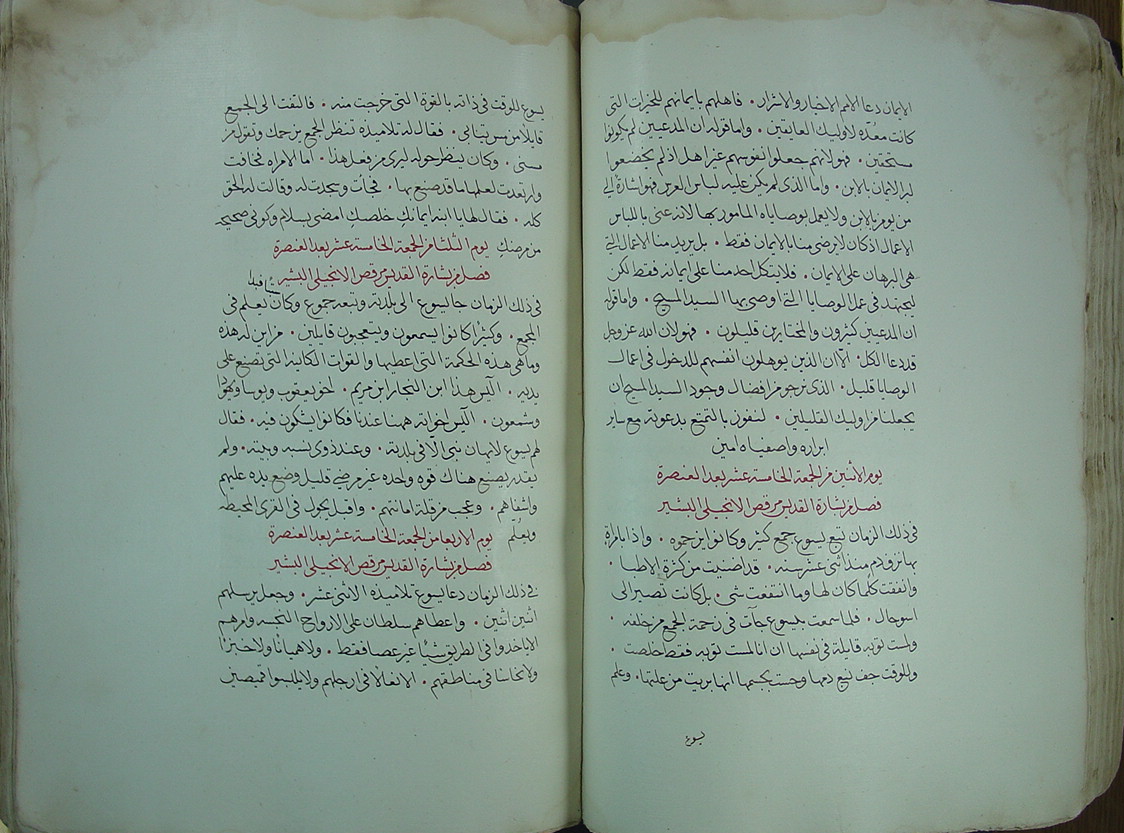 الايمان دعا الامم الاخيار والاشرار • فاهلهم بايمانهم للخيرات التي
كانت معدّه لاوليك العايقين • واما قوله ان المدعيين لم يكونوا
مستحقين • فهو لانهم جعلوا نفوسهم غير اهل اذ لم يخضعوا
لبر الايمان بالابن • واما الذي لم يكن عليه لباس العرس فهو اشارة الى
من يومن بالابن ولا يعمل بوصاياه المامور بها لانه عنى باللباس
الاعمال اذ كان لا يرضى منا بالايمان فقط • بل يريد منا الاعمال التي
هي البرهان على الايمان • فلا يتكل احد منا على ايمانه فقط لكن
ليجتهد في عمل الوصايا التي اوصى بها السيد المسيح • واما قوله
ان المدعيين كثيرون والمختارين قليلون • فهو لان الله عز وجل
قد دعا الكل • الا ان الذين يوهلون انفسهم للدخول في اعمال
الوصايا قليل • الذي نرجو من افضال وجود السيد المسيح ان
يجعلنا من اوليك القليلين • لنفوز بالتمتع بدعوته مع ساير
ابراره واصفياه امين
يوم الاثنين من الجمعة الخامسة عشر بعد العنصرة
فصل من بشارة القديس مرقص الانجيلي البشير
في ذلك الزمان تبع يسوع جمع كثير وكانوا يزحموه • واذا بامراة
بها نزف دم منذ اثنى عشر سنه • قد اضنيت من كثرة الاطبا •
وانفقت كلما كان لها وما انتفعت شي • بل كانت تصير الى
اسو حال • فلما سمعت بيسوع جآت في زحمة الجمع من خلفه •
ولمست ثوبه قايلة في نفسها ان انا لمست ثوبه فقط خلصت •
وللوقت جف نبع دمها وحست بجسمها انها بريت من علتها • وعلم
يسوع
يسوع للوقت في ذاته بالقوة التي خرجت منه • فالتفت الى الجمع
قايلاً من مس ثيابي • فقال له تلاميذه تنظر الجمع يزحمك وتقول من
مسنى • وكان ينظر حوله ليرى من فعل هذا • اما الامراه فخافت
وارتعدت لعلمها ما قد صنع بها • فجأت وسجدت له وقالت له الحق
كله • فقال لها يا ابنه ايمانكِ خلصكِ امضى بسلام وكوني صحيحه
من مرضكِ يوم الثلثا من الجمعة الخامسة عشر بعد العنصرة
فصل من بشارة القديس مرقص الانجيلي البشير
في ذلك الزمان جا يسوع الى بلدته وتبعه جموع وكان يعلم في
المجمع • وكثيرًا كانوا يسمعون ويتعجبون قايلين • من اين له هذه
وما هي هذه الحكمة التي اعطيها والقوات الكاينه التي تصنع على
يديه • اليس هذا ابن النجار ابن مريم • اخو يعقوب ويوسا ويهوذا
وشمعون • اليس اخواته ههنا عندنا فكانوا يشكون فيه • فقال
لهم يسوع لا يهان نبي الا في بلدته • وعند ذوي نسبه وبيته • ولم
يقدر يصنع هناك قوه واحده غير مرضى قليل وضع يده عليهم
واشفاهم • وعجب من قلة امانتهم • واقبل يجول في القرى المحيطه
ويعلم يوم الاربعا من الجمعة الخامسة عشر بعد العنصرة
فصل من بشارة القديس مرقص الانجيلي البشير
في ذلك الزمان دعا يسوع تلاميذه الاثنى عشر • وجعل يرسلهم
اثنين اثنين • واعطاهم سلطان على الارواح النجسه وامرهم
الا ياخدوا في الطريق شيًا غير عصا فقط • ولا هميانًا ولا خبزًا
ولا نحاسًا في مناطقهم • الا نعالاً في ارجلهم ولا يلبسوا قميصين